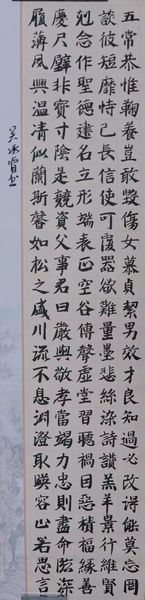 五常恭惟鞠養豈敢毀傷女慕貞絜男效才良知過必改得能莫忘罔
談彼短靡恃己長信使可覆器欲難量墨悲絲染詩讚羔羊景行維賢
剋念作聖德建名立形端表正空谷傳聲虛堂習聽禍因惡積福緣善
慶尺璧非寶寸陰是競資父事君曰嚴與敬孝當竭力忠則盡命臨深
履薄夙興溫清似蘭斯馨如松之盛川流不息淵澄取映容止若思言